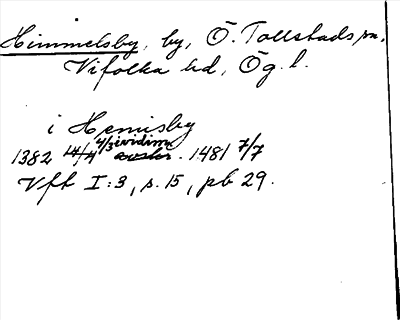 Himmelsby, by, Ö. Tollstads sn,
Vifolka hd, Ög. l.
i Hemisby
1382 14/4 4/3 i vidim. avskr. 1481 7/7
Vfb I:3, s. 15, pb 29.